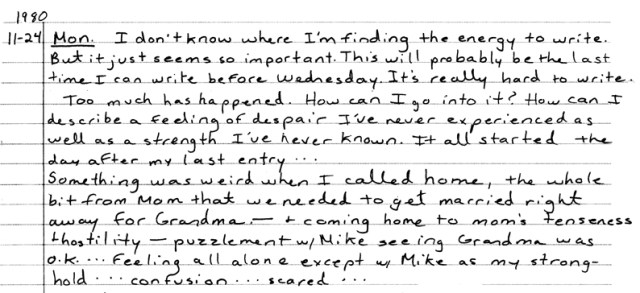 1980
11-24 Mon. I don't know where I'm finding the energy to write.
But it just seems so important. This will probably be the last
time I can write before Wednesday. It's really hard to write.
Too much has happened. How can I go into it? How can I
describe a feeling of despair I've never experienced as
well as a strength I've never known. It all started the
day after my last entry ...
Something was weird when I called home, the whole
bit from Mom that we needed to get married right
away for Grandma — + coming home to mom's tenseness
+ hostility — puzzlement w/ Mike seeing Grandma was
o.k. ... Feeling all alone except w/ Mike as my strong-
hold ... confusion ... scared ...